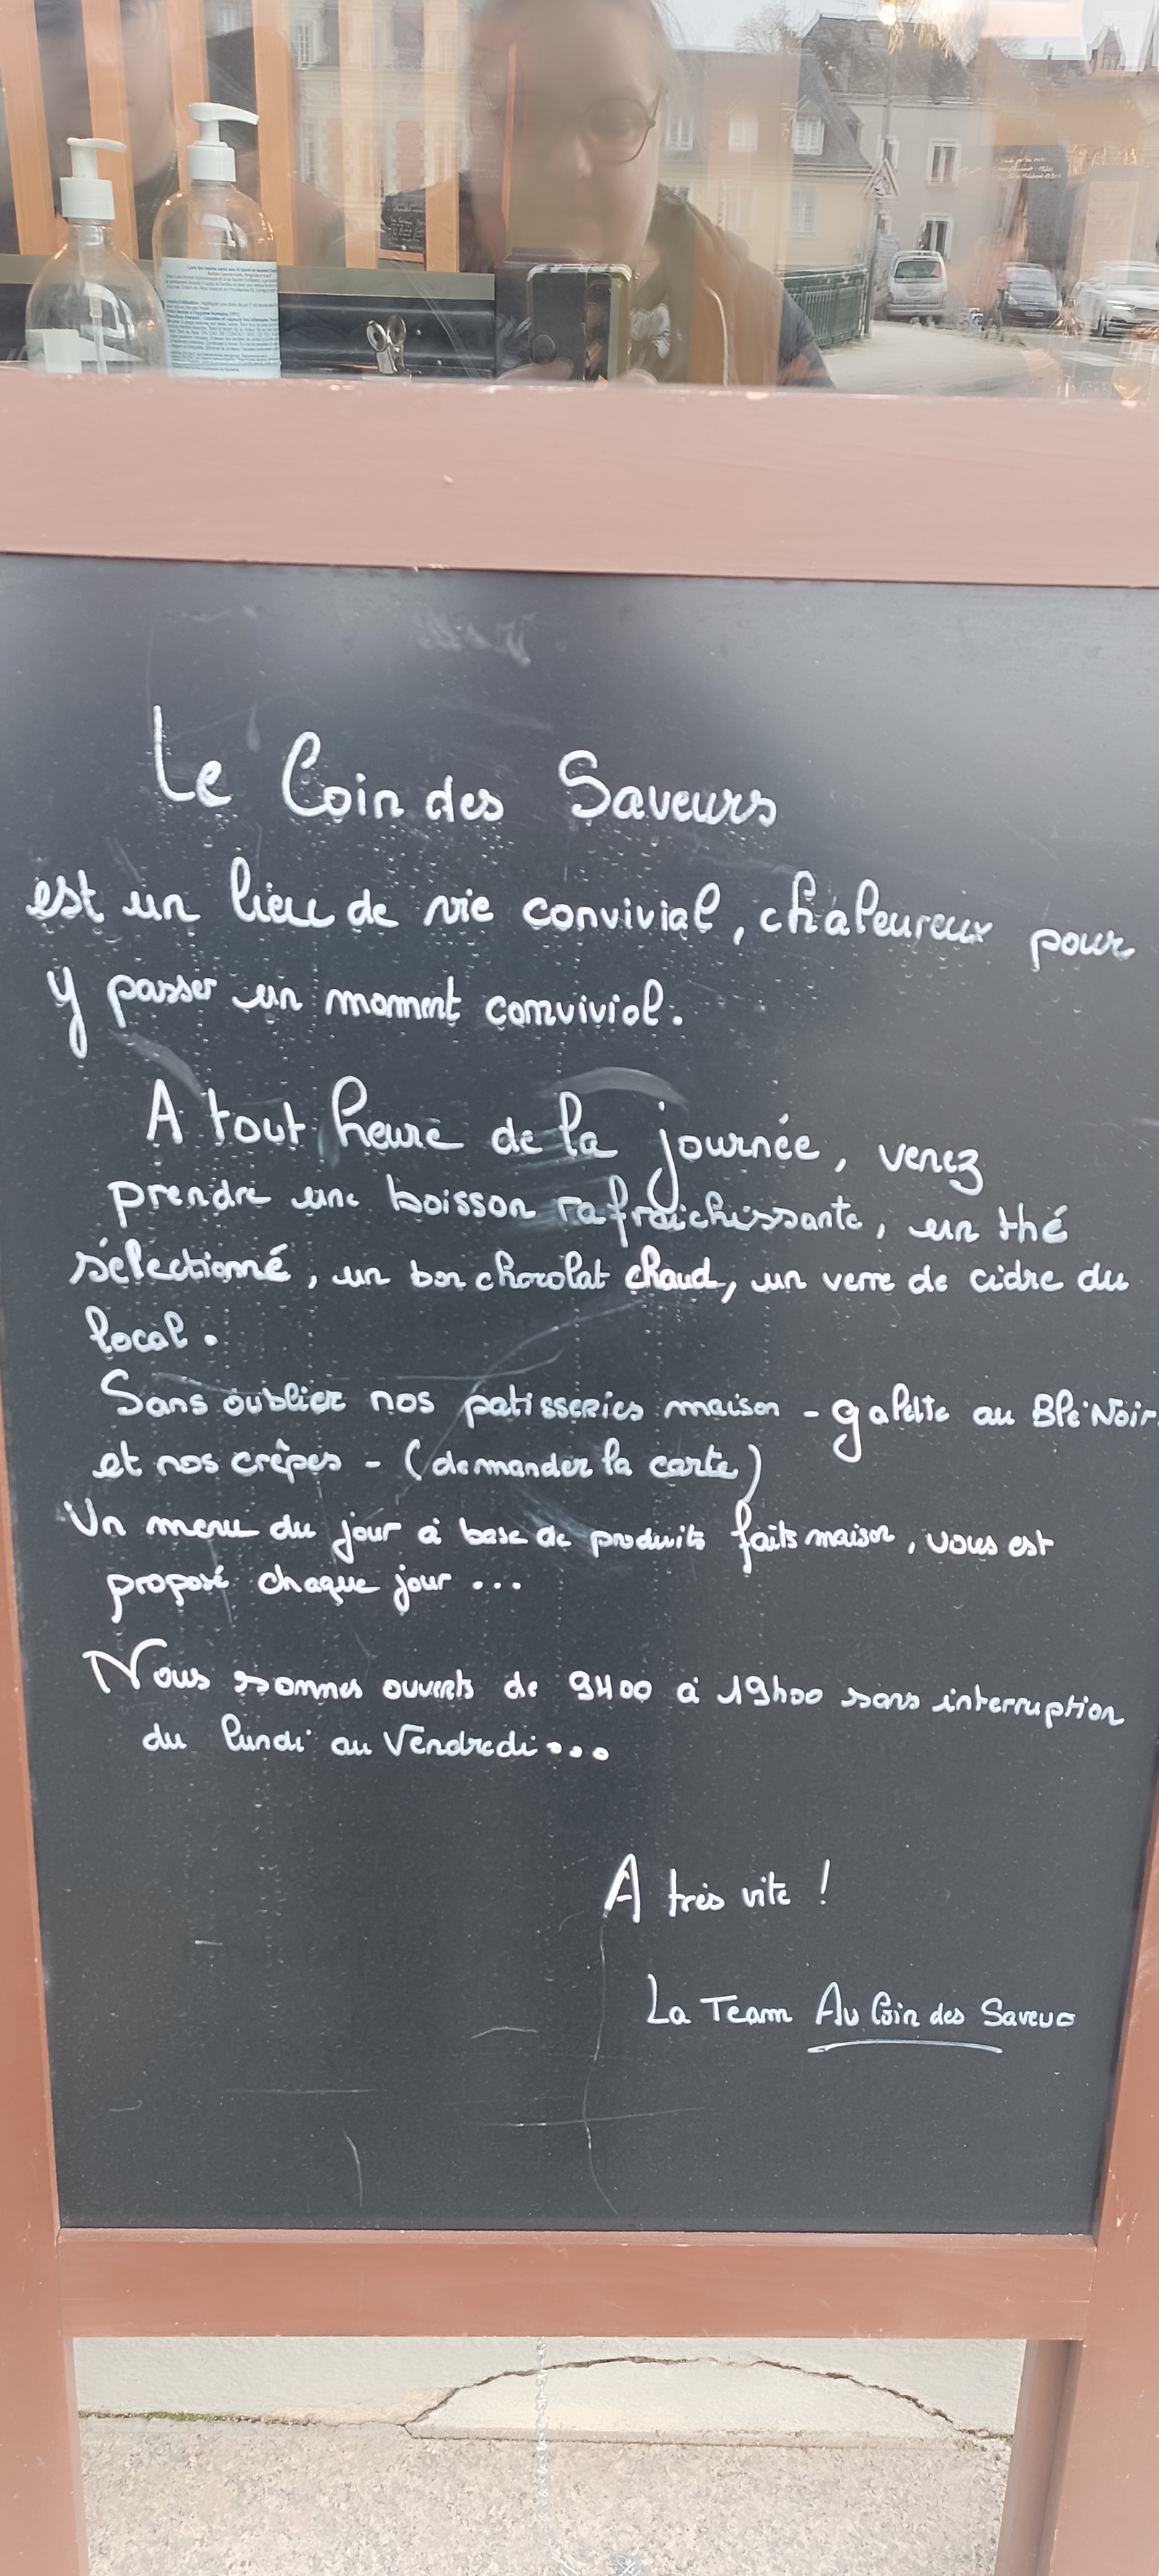 Le Coin des Saveurs
est un lieu de vie convivial, chaleureux pour
y passer un moment convivial.
A tout heure de la journée, venez
prendre une boisson rafraichissante, un thé
sélectionné, un bon chocolat chaud, un verre de cidre du
local.
Sans oublier nos patisseries maison - galette au Blé Noir
et nos crêpes - (demander la carte)
Un menu du jour à base de produits faits maison, vous est
proposé chaque jour ...
Nous sommes ouverts de 9H00 à 19h00 sans interruption
du lundi au Vendredi...
A très vite !
La Team Au Coin des Saveurs